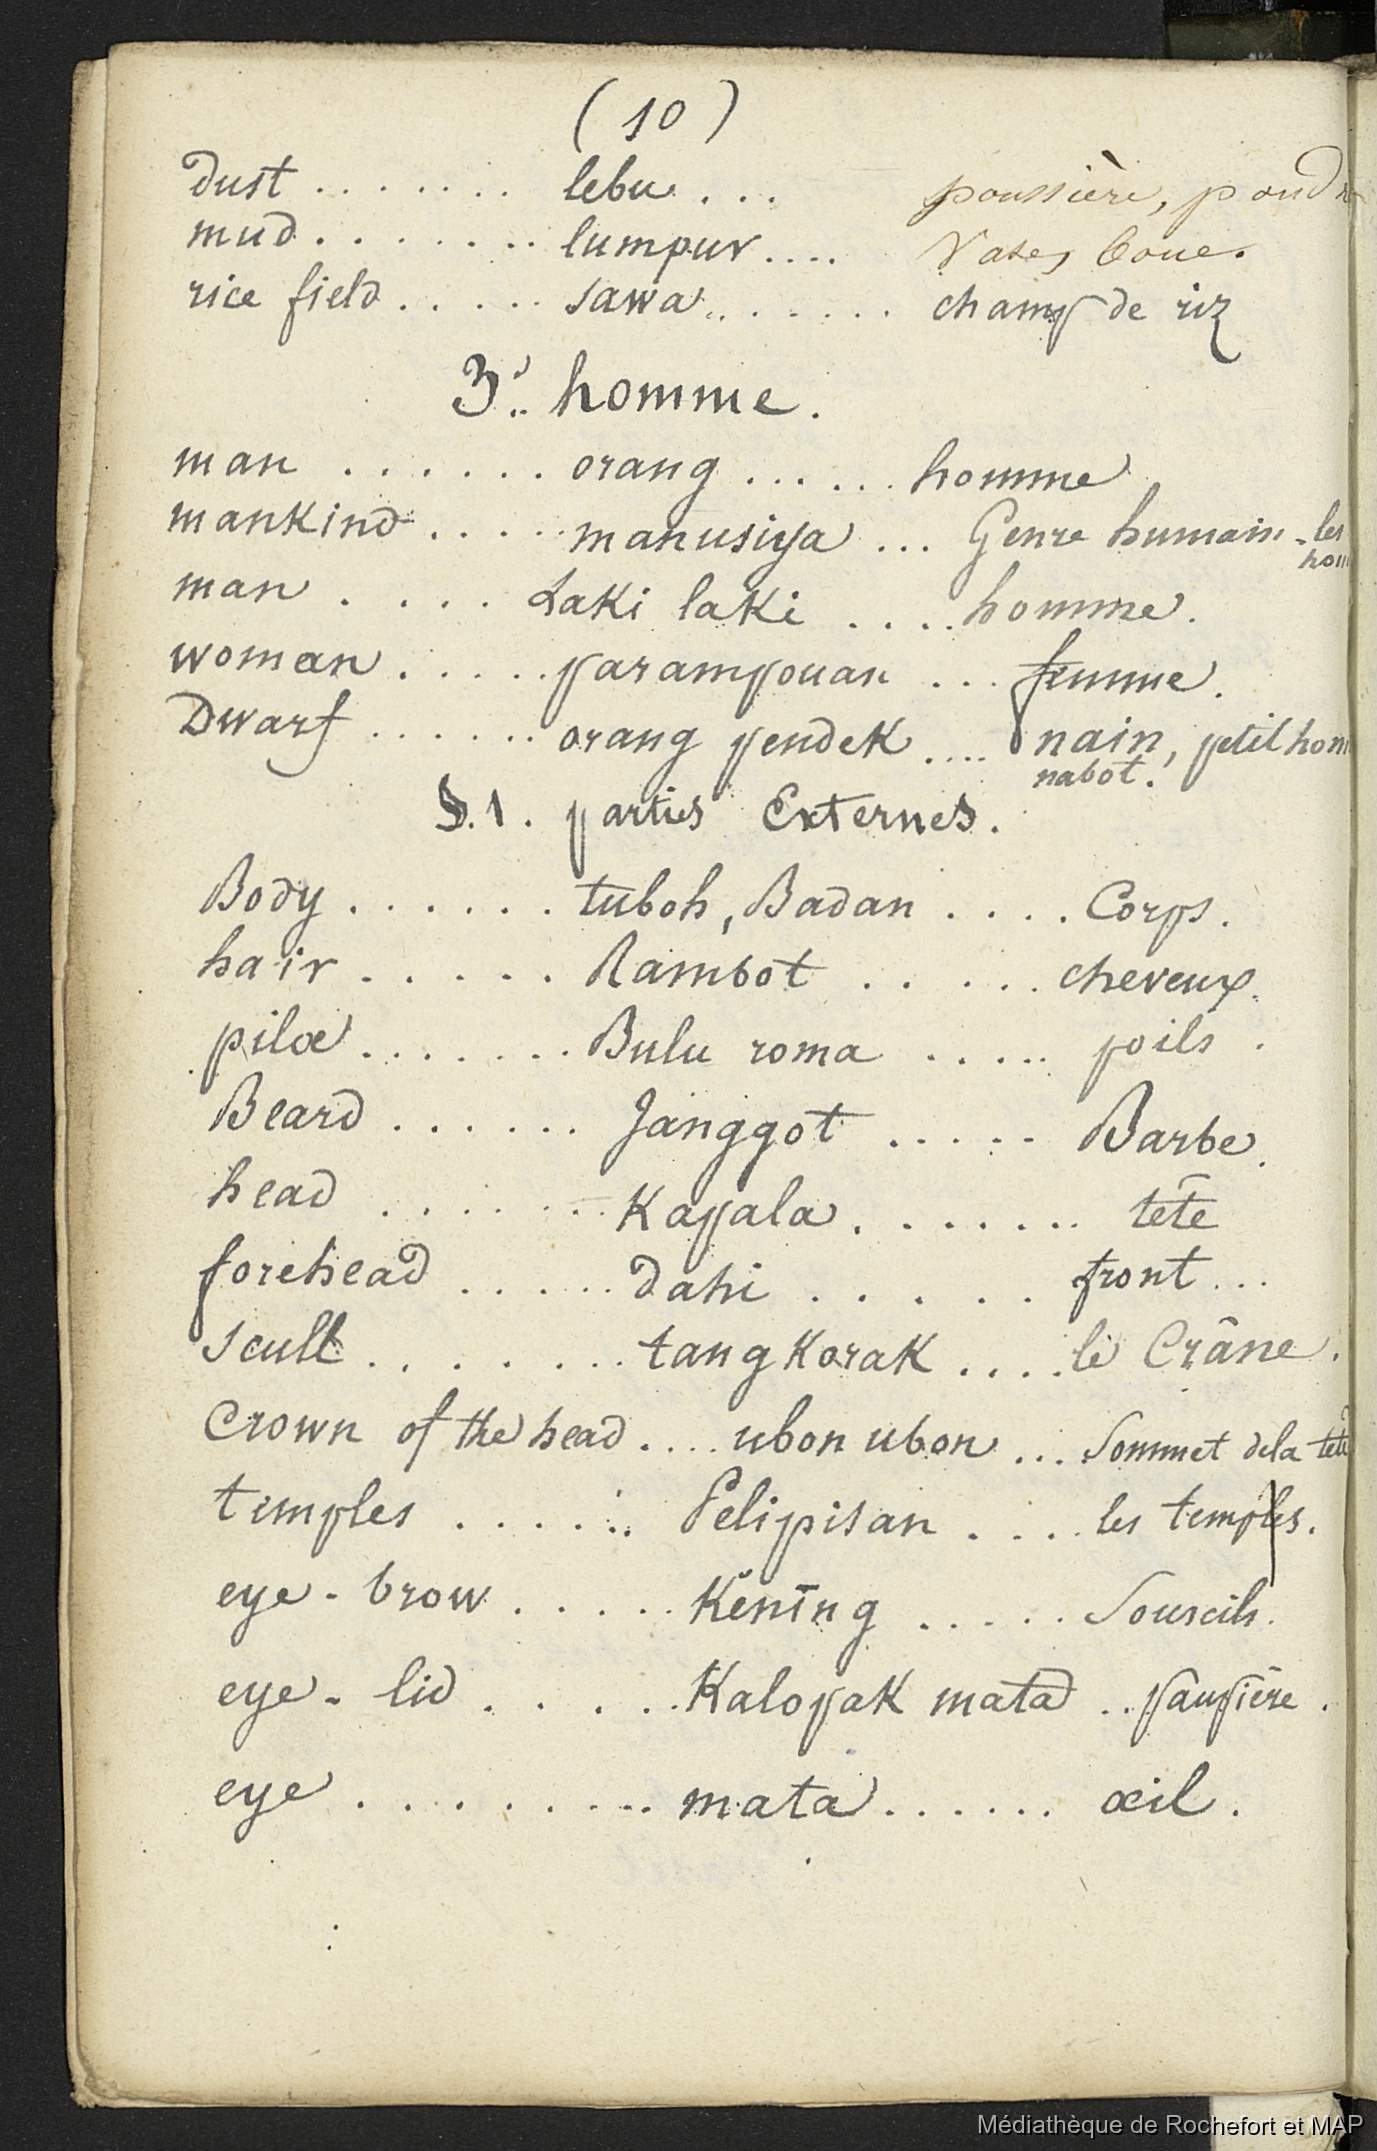 ( 10 )
dust ....... lebu ... poussière, poud
mud ....... lumpur .... Vases boue.
rice field ..... sawa ....... champ de riz
3.. homme.
man ...... orang ...... homme
mankind ..... manusiya ... Genre humain - les
hom
man .... Laki laki .... homme.
woman ..... parampouan ... femme.
Dwarf ...... orang pendek .... nain, petit hom
nabot.
§. 1. parties Externes.
Body ...... tuboh, Badan .... Corps.
hair ..... Rambot ..... cheveux.
pilœ ....... Bulu roma ..... poils.
Beard ...... Janggot ..... Barbe.
head ...... Kapala ....... tête
forehead ..... dahi ..... front ...
scull ....... tangkorak .... le Crâne.
Crown of the head .... ubon ubon ... Sommet dela tete
temples ...... Pelipisan .... les temples.
eye-brow ..... Kĕning ..... Sourcils.
eye-lid ..... Kalopak mata .. paupière.
eye ......... mata ...... œil.
Médiathèque de Rochefort et MAP